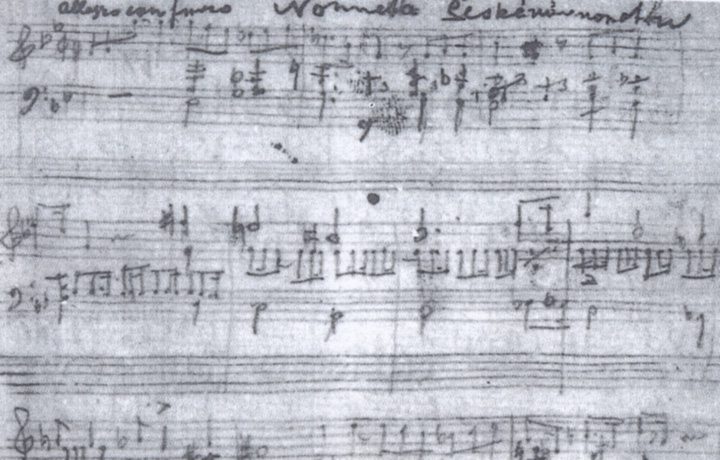 allegro con fuoco Nonnetto Českému nonettu